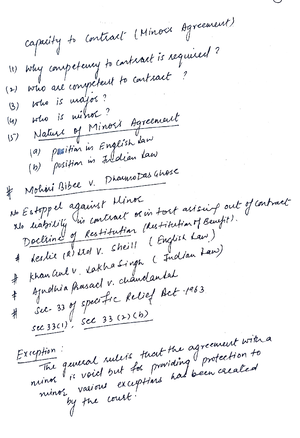 capacity to Contract (Minors Agreement)
(1) Why competency to contract is required ?
(2) who are competent to contract ?
(3) who is major ?
(4) who is minor ?
(5) Nature of Minor's Agreement
(a) position in English Law
(b) position in Indian Law
# Mohori Bibee v. Dharmo Das Ghose
No Estoppel against Minor
No liability in contract or in tort arising out of contract
Doctrine of Restitution (Restitution of Benefit).
* Leslie (R) Ltd v. Sheill (English Law)
* Khan Gul v. Lakha Singh (Indian Law)
* Ajudhia Prasad v. Chandan Lal
# Sec-33 of Specific Relief Act -1963
sec 33(1), sec 33 (2) (b)
Exception :
The general rule is that the agreement with a
minor is void but for providing protection to
minor various exceptions has been created
by the court.